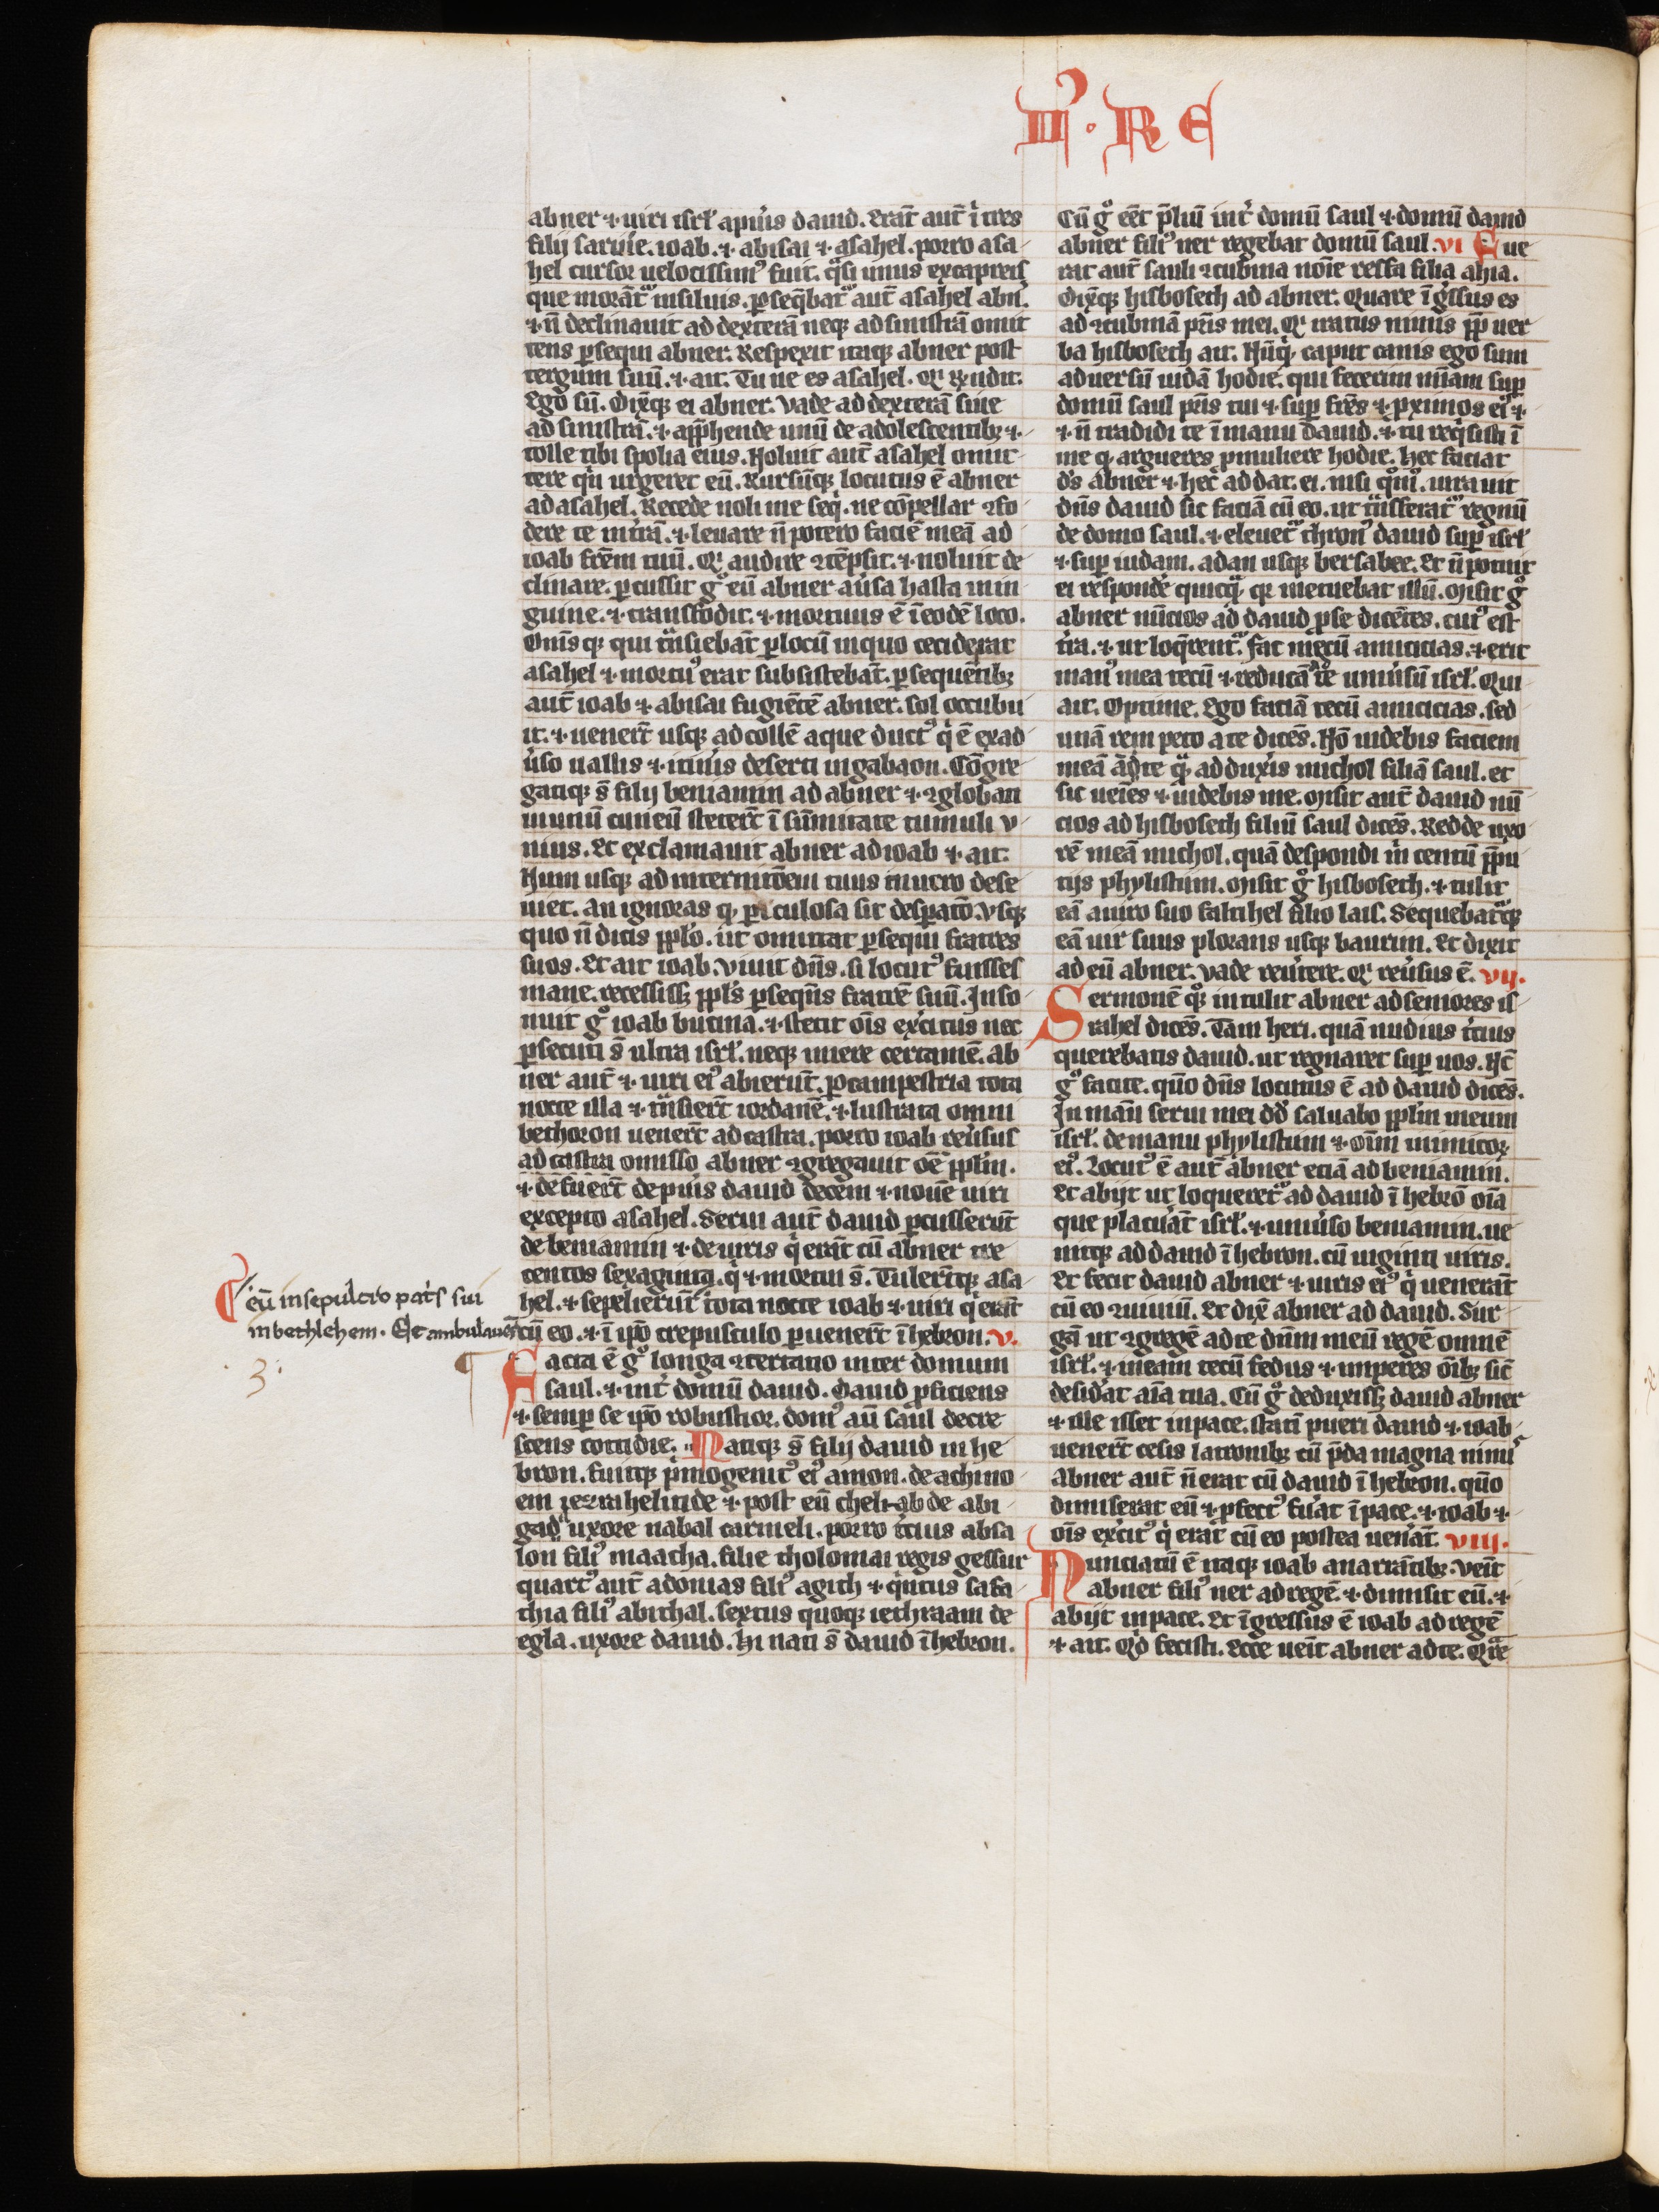 IIᵒ · RE
abner ⁊ uiri isrł apu̓is dauid. Erāt aut̄ ı̄ tres
filij saruie. ioab. ⁊ abisai ⁊ asahel. porro asa-
hel cursor uelocissimꝰ fuit. qͣsi unus ex capreis
que morāt᷑ in siluis. ꝑseq̄bat᷑ aut̄ asahel abn̓.
⁊ n̄ declinauit ad dexterā neqꝫ ad sinistrā omit
tens ꝑsequi abner. Respexit itaqꝫ abner post
tergum suū. ⁊ ait. Tu ne es asahel. Qı r̄ndit.
Ego sū. Dix̄qꝫ ei abner. Vade ad dexterā siue
ad sinistrā. ⁊ app̄hende unū de adolescentibꝫ ⁊
tolle tibi spolia eius. Noluit aut̄ asahel omit-
tere qn̓ urgeret eū. Rursūqꝫ locutus ē abner
ad asahel. Recede noli me seq̓. ne cōpellar ꝯfo
dere te in t̓rā. ⁊ leuare n̄ potero faciē meā ad
ioab fr̄em tuū. Qı audire ꝯtēpsit. ⁊ noluit de
clinare. ꝑcussit gͦ eū abner au̓sa hasta in in
guine. ⁊ transfodit. ⁊ mortuus ē ı̄ eodē loco.
Om̄s qꝫ qui tͣnsiebāt ꝑ locū in quo ceciderat
asahel ⁊ mortuꝰ erat subsistebāt. ꝑsequētibꝫ
aut̄ ioab ⁊ abisai fugiētē abner. sol occubu
it. ⁊ uener̄t usqꝫ ad collē aque ductꝰ q̓ ē ex ad
u̓so uallis ⁊ itin̓is deserti in gabaon. Cōgre
gatiqꝫ s̄ filij beniamin ad abner ⁊ ꝯglobati
in unū cuneū steter̄t ı̄ sūmitate tumuli v
nius. Et exclamauit abner ad ioab ⁊ ait.
Num usqꝫ ad internitōem tuus mucro dese
uiet. An ignoras qꝫ ꝑiculosa sit desꝑatō. Vsqꝫ
quo n̄ dicis pplo. ut omittat ꝑsequi fratres
suos. Et ait ioab. Viuit dn̄s. si locutꝰ fuisses
mane. recessissꝫ ppls ꝑseqn̄s fratrē suū. Inso
nuit gͦ ioab bucina. ⁊ stetit om̄s ex̓citus nec
ꝑsecuti s̄ ultra isrł. neqꝫ iniere certamē. Ab
ner aut̄ ⁊ uiri eiꝰ abierūt. ꝑ campestria tota
nocte illa ⁊ tͣnsier̄t iordanē. ⁊ lustrata omni
bethoron uener̄t ad castra. porro ioab reu̓sus
ad castra omisso abner ꝯgregauit oēm pplm.
⁊ defuer̄t de pu̓is dauid decem ⁊ nouē uiri
excepto asahel. Serui aut̄ dauid ꝑcusserūt
de beniamin ⁊ de uiris q̓ erāt cū abner tre
centos sexaginta. q̓ ⁊ mortui s̄. Tuler̄tqꝫ asa
hel. ⁊ sepelierūt tota nocte ioab ⁊ uiri q̓ erāt
cū eo. ⁊ ı̄ ip̄o crepusculo ꝑuener̄t ı̄ hebron. v.
Facta ē gͦ longa ꝯcertatio inter domum
saul. ⁊ int̓ domū dauid. Dauid ꝓficiens
⁊ semꝑ se ip̄o robustior. domꝰ aū saul decre
scens cottidie. Natiqꝫ s̄ filij dauid in he
bron. fuitqꝫ p̓mogenitꝰ eiꝰ amon. de achino
em iezrahelitide ⁊ post eū cheliab de abi
gail uxore nabal carmeli. porro t̓cius absa
lon filiꝰ maacha. filie tholomai regis gessur
quartꝰ aut̄ adonias filiꝰ agith ⁊ q̓ntus safa
thia filiꝰ abithal. sextus quoqꝫ iethraam de
egla. uxore dauid. Hi nati s̄ dauid ı̄ hebron.
eū in sepulcro pat̓s sui
in bethlehem. Et ambulauer̄t
3
Cū gͦ eēt p̄liū int̓ domū saul ⁊ domū dauid
abner filiꝰ ner regebat domū saul. vi Fue
rat aut̄ sauli ꝯcubina noı̄e resfa filia ahia.
Dix̄qꝫ hisboseth ad abner. Quare ı̄gͥssus es
ad ꝯcubinā pr̄is mei. Qı iratus nimis ꝓp̄ uer
ba hisboseth ait. Nūq̓d caput canis ego sum
aduersū iudā hodie. qui fecerim mı̄am suꝑ
domū saul pr̄is tui ⁊ suꝑ fr̄es ⁊ ꝓximos eiꝰ ⁊
⁊ n̄ tradidi te ı̄ manu dauid. ⁊ tu req̓sisti ı̄
me qꝫ argueres ꝓ muliere hodie. Hec faciat
ds̄ abner ⁊ hec addat ei. nisi qͦmͦ. iurauit
dn̄s dauid sic faciā cū eo. ut tͣnsferat᷑ regnū
de domo saul. ⁊ eleuet᷑ thronꝰ dauid suꝑ isrł
⁊ suꝑ iudam. a dan usqꝫ bersabee. Et n̄ potuit
ei respondē quicqͣ. qꝛ metuebat illū. Misit gͦ
abner nūcios ad dauid ꝓ se dicētes. cuiꝰ est
t̓ra. ⁊ ut loqrent᷑. Fac mecū amicicias. ⁊ erit
manꝰ mea tecū ⁊ reducā ad te uniu̓sū isrł. Qui
ait. Optime. Ego faciā tecū amicicias. sed
unā rem peto a te dicēs. Nō uidebis faciem
meā ān̄te qͣ adduxis michol filiā saul. et
sic ueīes ⁊ uidebis me. Misit aut̄ dauid nū
cios ad hisboseth filiū saul dicēs. Redde uxo
rē meā michol. quā despondi m̓ centū p̄pu
tijs phylistim. Misit gͦ hisboseth. ⁊ tulit
eā a uiro suo faltihel filio lais. Sequebat᷑qꝫ
eā uir suus plorans usqꝫ baurim. Et dixit
ad eū abner. Vade reu̓tere. Qı reu̓sus ē. vij.
Sermonē qͦꝫ intulit abner ad seniores is
rahel dicēs. Tam heri. quā nudius t̓cius
querebatis dauid. ut regnaret suꝑ uos. Nc̄
gͦ facite. qūo dn̄s locutus ē ad dauid dicēs.
In manū serui mei dd̄ saluabo pplm meum
isrł. de manu phylistiim ⁊ om̄m inimicoꝝ
eiꝰ. Locutꝰ ē aut̄ abner eciā ad beniamin.
Et abijt ut loqueret᷑ ad dauid ı̄ hebrō om̄ia
que placu̓āt isrł. ⁊ uniu̓so beniamin. ue
nitqꝫ ad dauid ı̄ hebron. cū uiginti uiris.
Et fecit dauid abner ⁊ uiris eiꝰ q̓ uenerāt
cū eo ꝯuiuiū. Et dix̄ abner ad dauid. Sur
gā ut ꝯgregē ad te dn̄m meū regē omnē
isrł. ⁊ ineam tecū fedus ⁊ imperes om̄ibꝫ sic̄
desid̓at aı̄a tua. Cū gͦ deduxissꝫ dauid abner
⁊ ille isset in pace. statī pueri dauid ⁊ ioab
uener̄t cesis latronibꝫ cū p̄da magna nimis
Abner aut̄ n̄ erat cū dauid ı̄ hebron. qūo
dimiserat eū ⁊ ꝓfectꝰ fu̓at ı̄ pace. ⁊ ioab ⁊
om̄s ex̓citꝰ q̓ erāt cū eo postea uen̓āt. viij.
Nunciatū ē itaqꝫ ioab a narrātibꝫ. Veīt
abner filiꝰ ner ad regē. ⁊ dimisit eū. ⁊
abijt in pace. Et ı̄gressus ē ioab ad regē
⁊ ait. Qd̓ fecisti. Ecce ueīt abner ad te. Qͣre